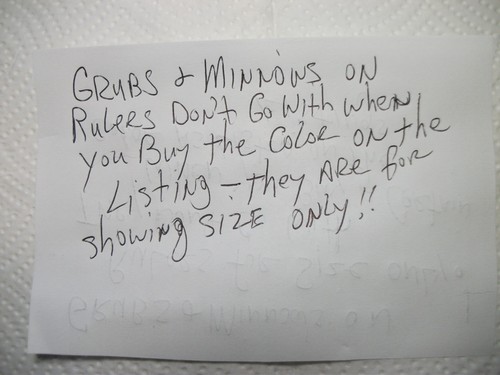 GRUBS & MINNOWS ON
RULERS DON't GO With when
you Buy the Color ON the
Listing - they ARE for
showing SIZE ONLY!!